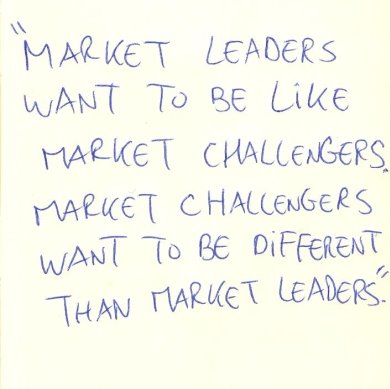 "MARKET LEADERS
WANT TO BE LIKE
MARKET CHALLENGERS.
MARKET CHALLENGERS
WANT TO BE DIFFERENT
THAN MARKET LEADERS."